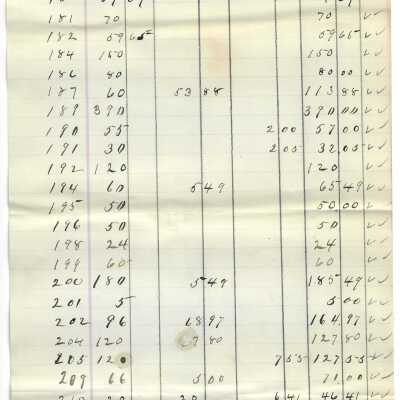 181 70 70 ✓✓
182 59 65 59 65 ✓✓
184 150 150 ✓✓
186 80 80 00 ✓✓
187 60 53 88 113 88 ✓✓
189 390 390 00 ✓✓
190 55 2 00 57 00 ✓✓
191 30 2 05 32 05 ✓✓
192 120 120 ✓✓
194 60 5 49 65 49 ✓✓
195 50 50 00 ✓✓
196 50 50 ✓✓
198 24 24 ✓✓
199 60 60 ✓✓
200 180 5 49 185 49 ✓✓
201 5 5 00 ✓✓
202 96 68 97 164 97 ✓✓
204 120 7 80 127 80 ✓✓
205 120 7 55 127 55 ✓✓
209 66 5 00 71 00 ✓✓
210 20 20 6 41 46 41 ✓✓